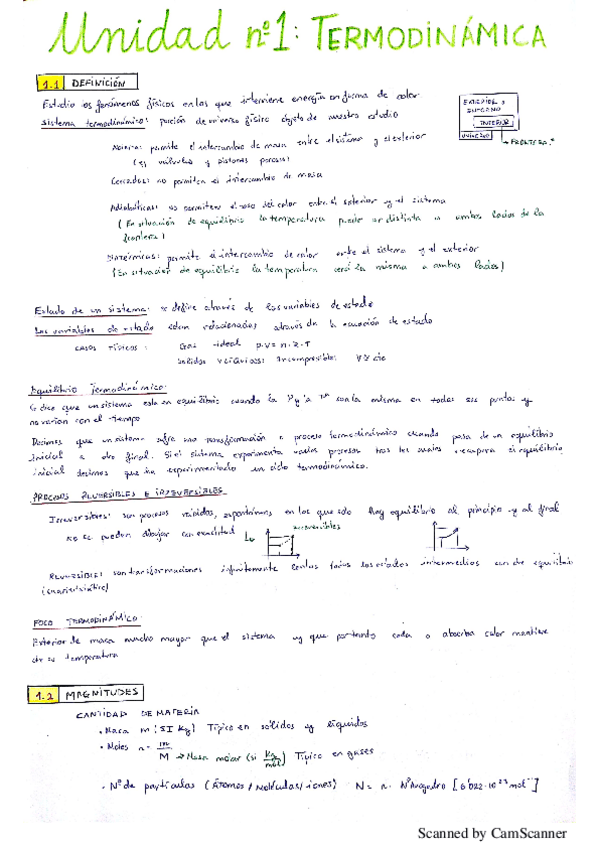 Unidad nº1: TERMODINÁMICA
1.1 DEFINICIÓN
Estudia los fenómenos físicos en los que interviene energía en forma de calor
EXTERIOR o
ENTORNO
INTERIOR
UNIVERSO
FRONTERA
Sistema termodinámico: porción de universo físico objeto de nuestro estudio
permite el intercambio de masa entre el sistema y el exterior
(ej válvulas y pistones porosos)
Cerradas: no permiten el intercambio de masa
Adiabáticas: no permiten el paso del calor entre el exterior y el sistema
(En situación de equilibrio la temperatura puede ser distinta a ambos lados de la
frontera)
Diatérmicas: permite el intercambio de calor entre el sistema y el exterior
(En situación de equilibrio la temperatura será la misma a ambos lados)
Estado de un sistema: se define através de las variables de estado
Las variables de estado están relacionadas através de la ecuación de estado
CASOS TÍPICOS: Gas ideal p·V = n·R·T
Sólidos y líquidos: Incompresible: V = cte
Equilibrio Termodinámico:
Se dice que un sistema esta en equilibrio cuando la P y la Tª son la misma en todos sus puntos y
no varían con el tiempo
Decimos que un sistema sufre una transformación o proceso termodinámico cuando pasa de un equilibrio
inicial a otro final. Si el sistema experimenta varios procesos tras los cuales recupera el equilibrio
inicial decimos que ha experimentado un ciclo termodinámico.
PROCESOS REVERSIBLES E IRREVERSIBLES
Irreversibles: son procesos rápidos, espontáneos en los que solo hay equilibrio al principio y al final
no se pueden dibujar con exactitud
irreversibles
REVERSIBLE: son transformaciones infinitamente lentas todos los estados intermedios son de equilibrio
(cuasiestático)
FOCO TERMODINÁMICO:
Exterior de masa mucho mayor que el sistema y que por tanto ceda o absorba calor mantiene
cte su temperatura
1.2 MAGNITUDES
CANTIDAD DE MATERIA
• Masa m (SI Kg) Típico en sólidos y líquidos
• Moles n = m
M → Masa molar (si Kg/mol) Típico en gases
• Nº de partículas (Átomos/Moléculas/iones) N = n · NºAvogadro [6'022·10²³ mol⁻¹]
Scanned by CamScanner